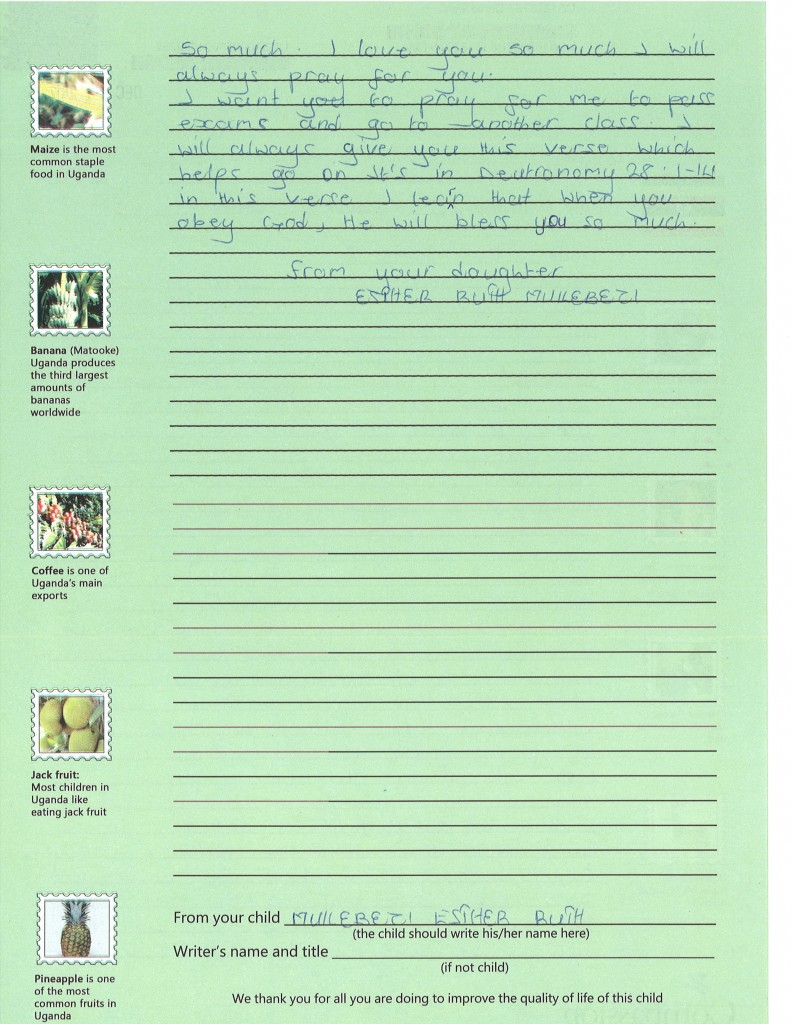 so much. I love you so much I will
always pray for you.
I want you to pray for me to pass
exams and go to another class. I
will always give you this verse which
helps go on It's in Deutronomy 28:1-14
in this verse I learn that when you
obey God, He will bless you so much.
from your daughter
ESTHER RUTH
Maize is the most
common staple
food in Uganda
Banana (Matooke)
Uganda produces
the third largest
amounts of
bananas
worldwide
Coffee is one of
Uganda's main
exports
Jack fruit:
Most children in
Uganda like
eating jack fruit
Pineapple is one
of the most
common fruits in
Uganda
From your child ESTHER RUTH
(the child should write his/her name here)
Writer's name and title
(if not child)
We thank you for all you are doing to improve the quality of life of this child